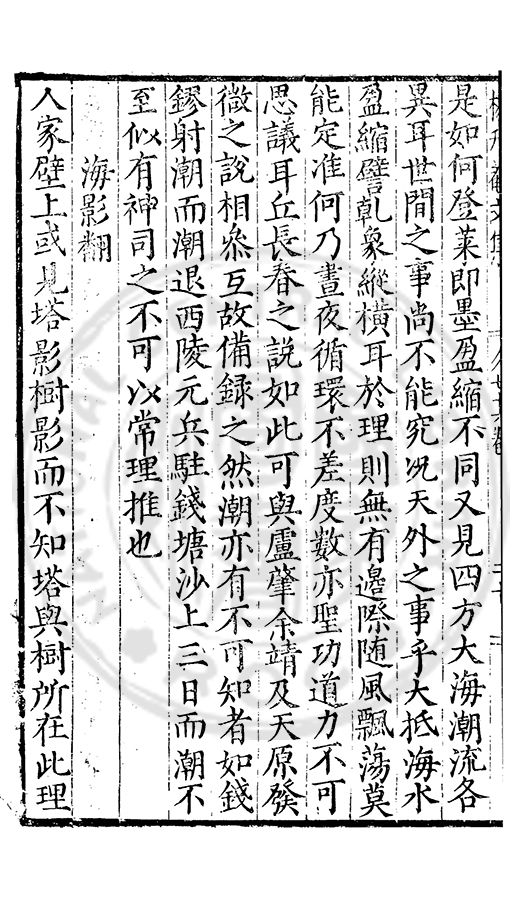 是如何登萊即墨盈縮不同又見四方大海潮流各
異耳世間之事尚不能究况天外之事乎大抵海水
盈縮譬乹象縱橫耳於理則無有邊際随風飄蕩莫
能定准何乃晝夜循環不差度數亦聖功道力不可
思議耳丘長春之説如此可與盧肇余靖及天原發
微之説相叅互故備録之然潮亦有不可知者如錢
鏐射潮而潮退西陵元兵駐錢塘沙上三日而潮不
至似有神司之不可以常理推也
海影翻
人家壁上或見塔影樹影而不知塔與樹所在此理